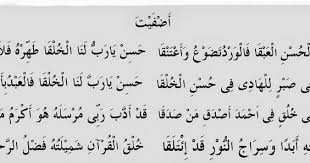 أَضْفَيْتَ
الْحُسْنِ الْعَبْقَا فَالْوَرْدُ تَضَوَّعُ وَاعْتَنَقَا حَسِّنْ يَارَبُّ لَنَا الْخُلْقَا طَهِّرْهُ
صَبْرٍ لِلْهَادِى فِى حُسْنِ الْخُلُقَا حَسِّنْ يَارَبَّ لَنَا الْخُلُقَا
خُلُقٍ فِى أَحْمَدِ أَصْدَقِ مَنْ صَدَقَا قَدْ أَدَّبَ رَبِّى مُرْسَلَهُ هُوَ أَكْرَمُ
أَبَدًا وَسِرَاجُ النُّوْرِ قَدْ إِئْتَلَقَا خُلُقُ الْقُرْآنِ شَمِيْلَتُهُ فَضْلُ